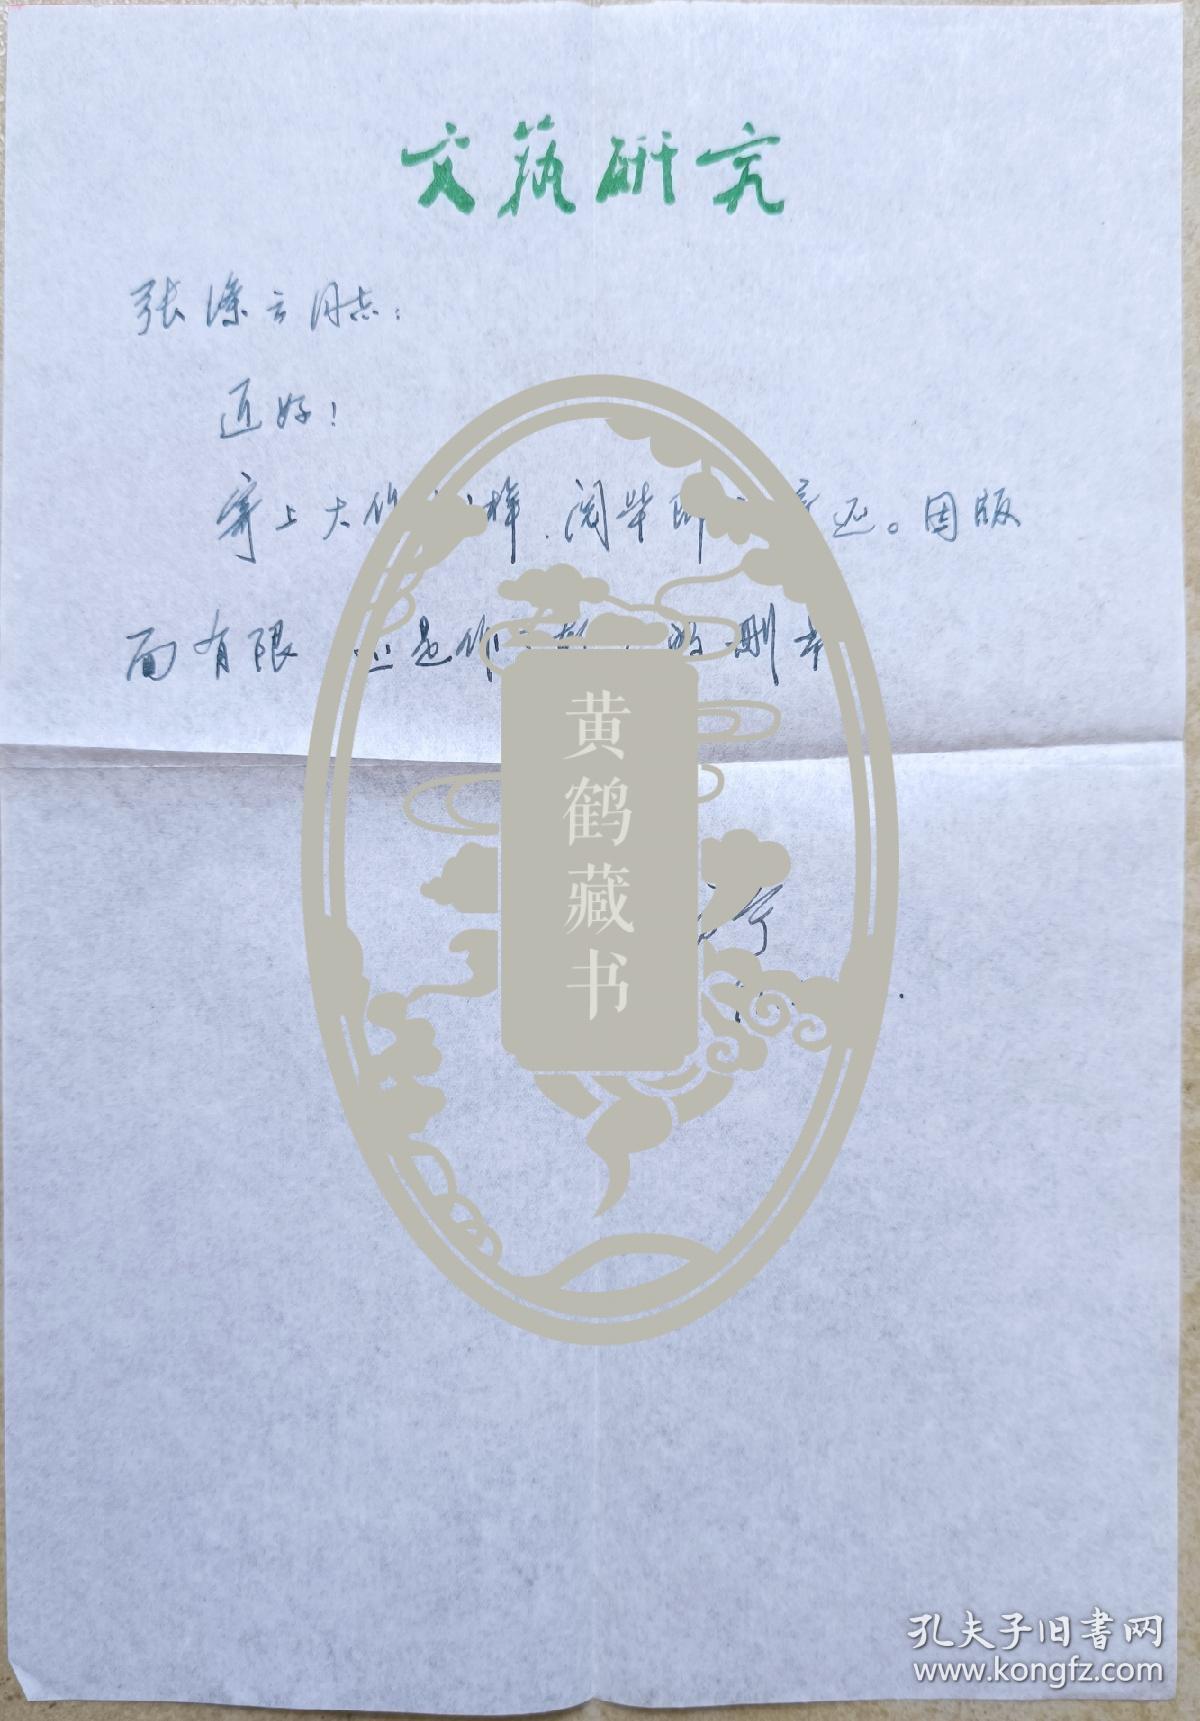 文藝研究
张涤云同志：
近好！
寄上大作 样，阅毕即 寄还。因版
面有限 还是作 的删
黄鹤藏书
孔夫子旧书网
www.kongfz.com